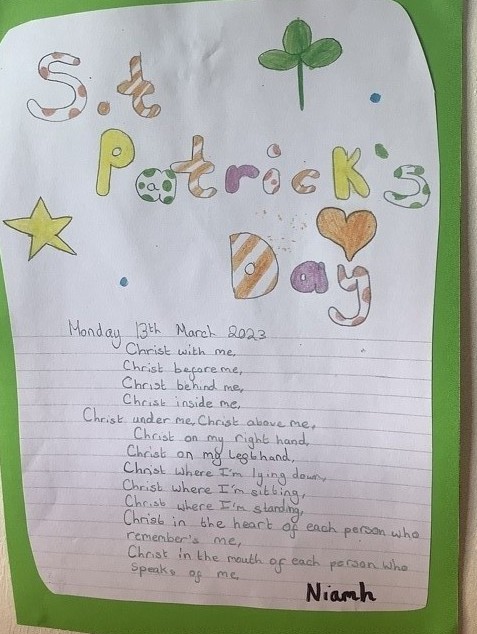 S.t
Patrick's
Day
Monday 13th March 2023
Christ with me,
Christ before me,
Christ behind me,
Christ inside me,
Christ under me, Christ above me,
Christ on my right hand,
Christ on my left hand,
Christ where I'm lying down,
Christ where I'm sitting,
Christ where I'm standing,
Christ in the heart of each person who
remember's me,
Christ in the mouth of each person who
speaks of me
Niamh